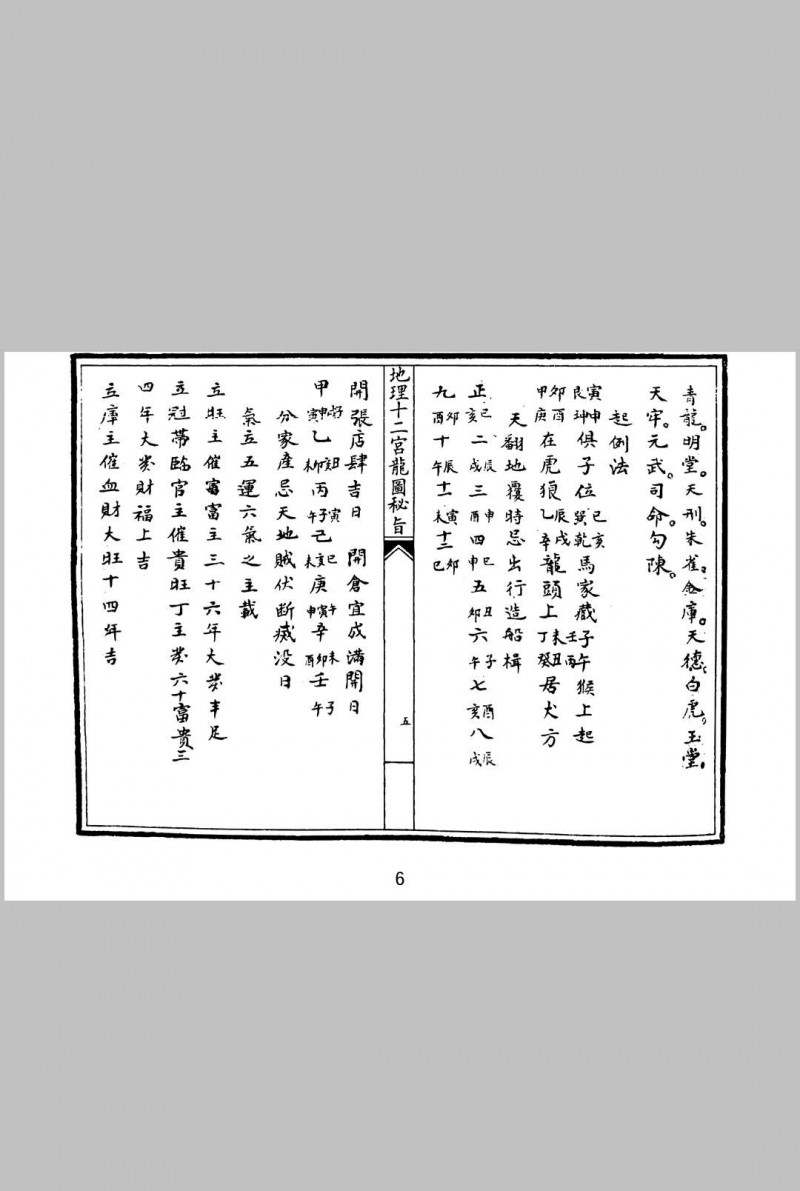 青龍。明堂。天刑。朱雀。金庫。天德。白虎。玉堂。
天牢。元武。司命。句陳。
起例法
寅申艮坤俱子位巳亥巽乾馬家藏子午壬丙猴上起
卯酉甲庚在虎狼乙辛辰戌龍頭上丁癸未丑居犬方
天翻地覆時忌出行造船楫
正巳亥二辰戌三申酉四巳申五丑卯六子午七酉亥八辰戌
九卯酉十辰午十一寅未十二卯巳
地理十二宮龍圖秘旨
五
開張店肆吉日 開倉宜成滿開日
甲申寅乙丙寅午子己巳亥未庚午寅申辛未卯酉壬子午
分家產忌天地賊伏斷滅没日
氣立五運六氣之主載
立旺主催富富主三十六年大發丰足
立冠帶臨官主催貴旺丁主發六十富貴三
四年大發財福上吉
立庫主催血財大旺十四年吉
6